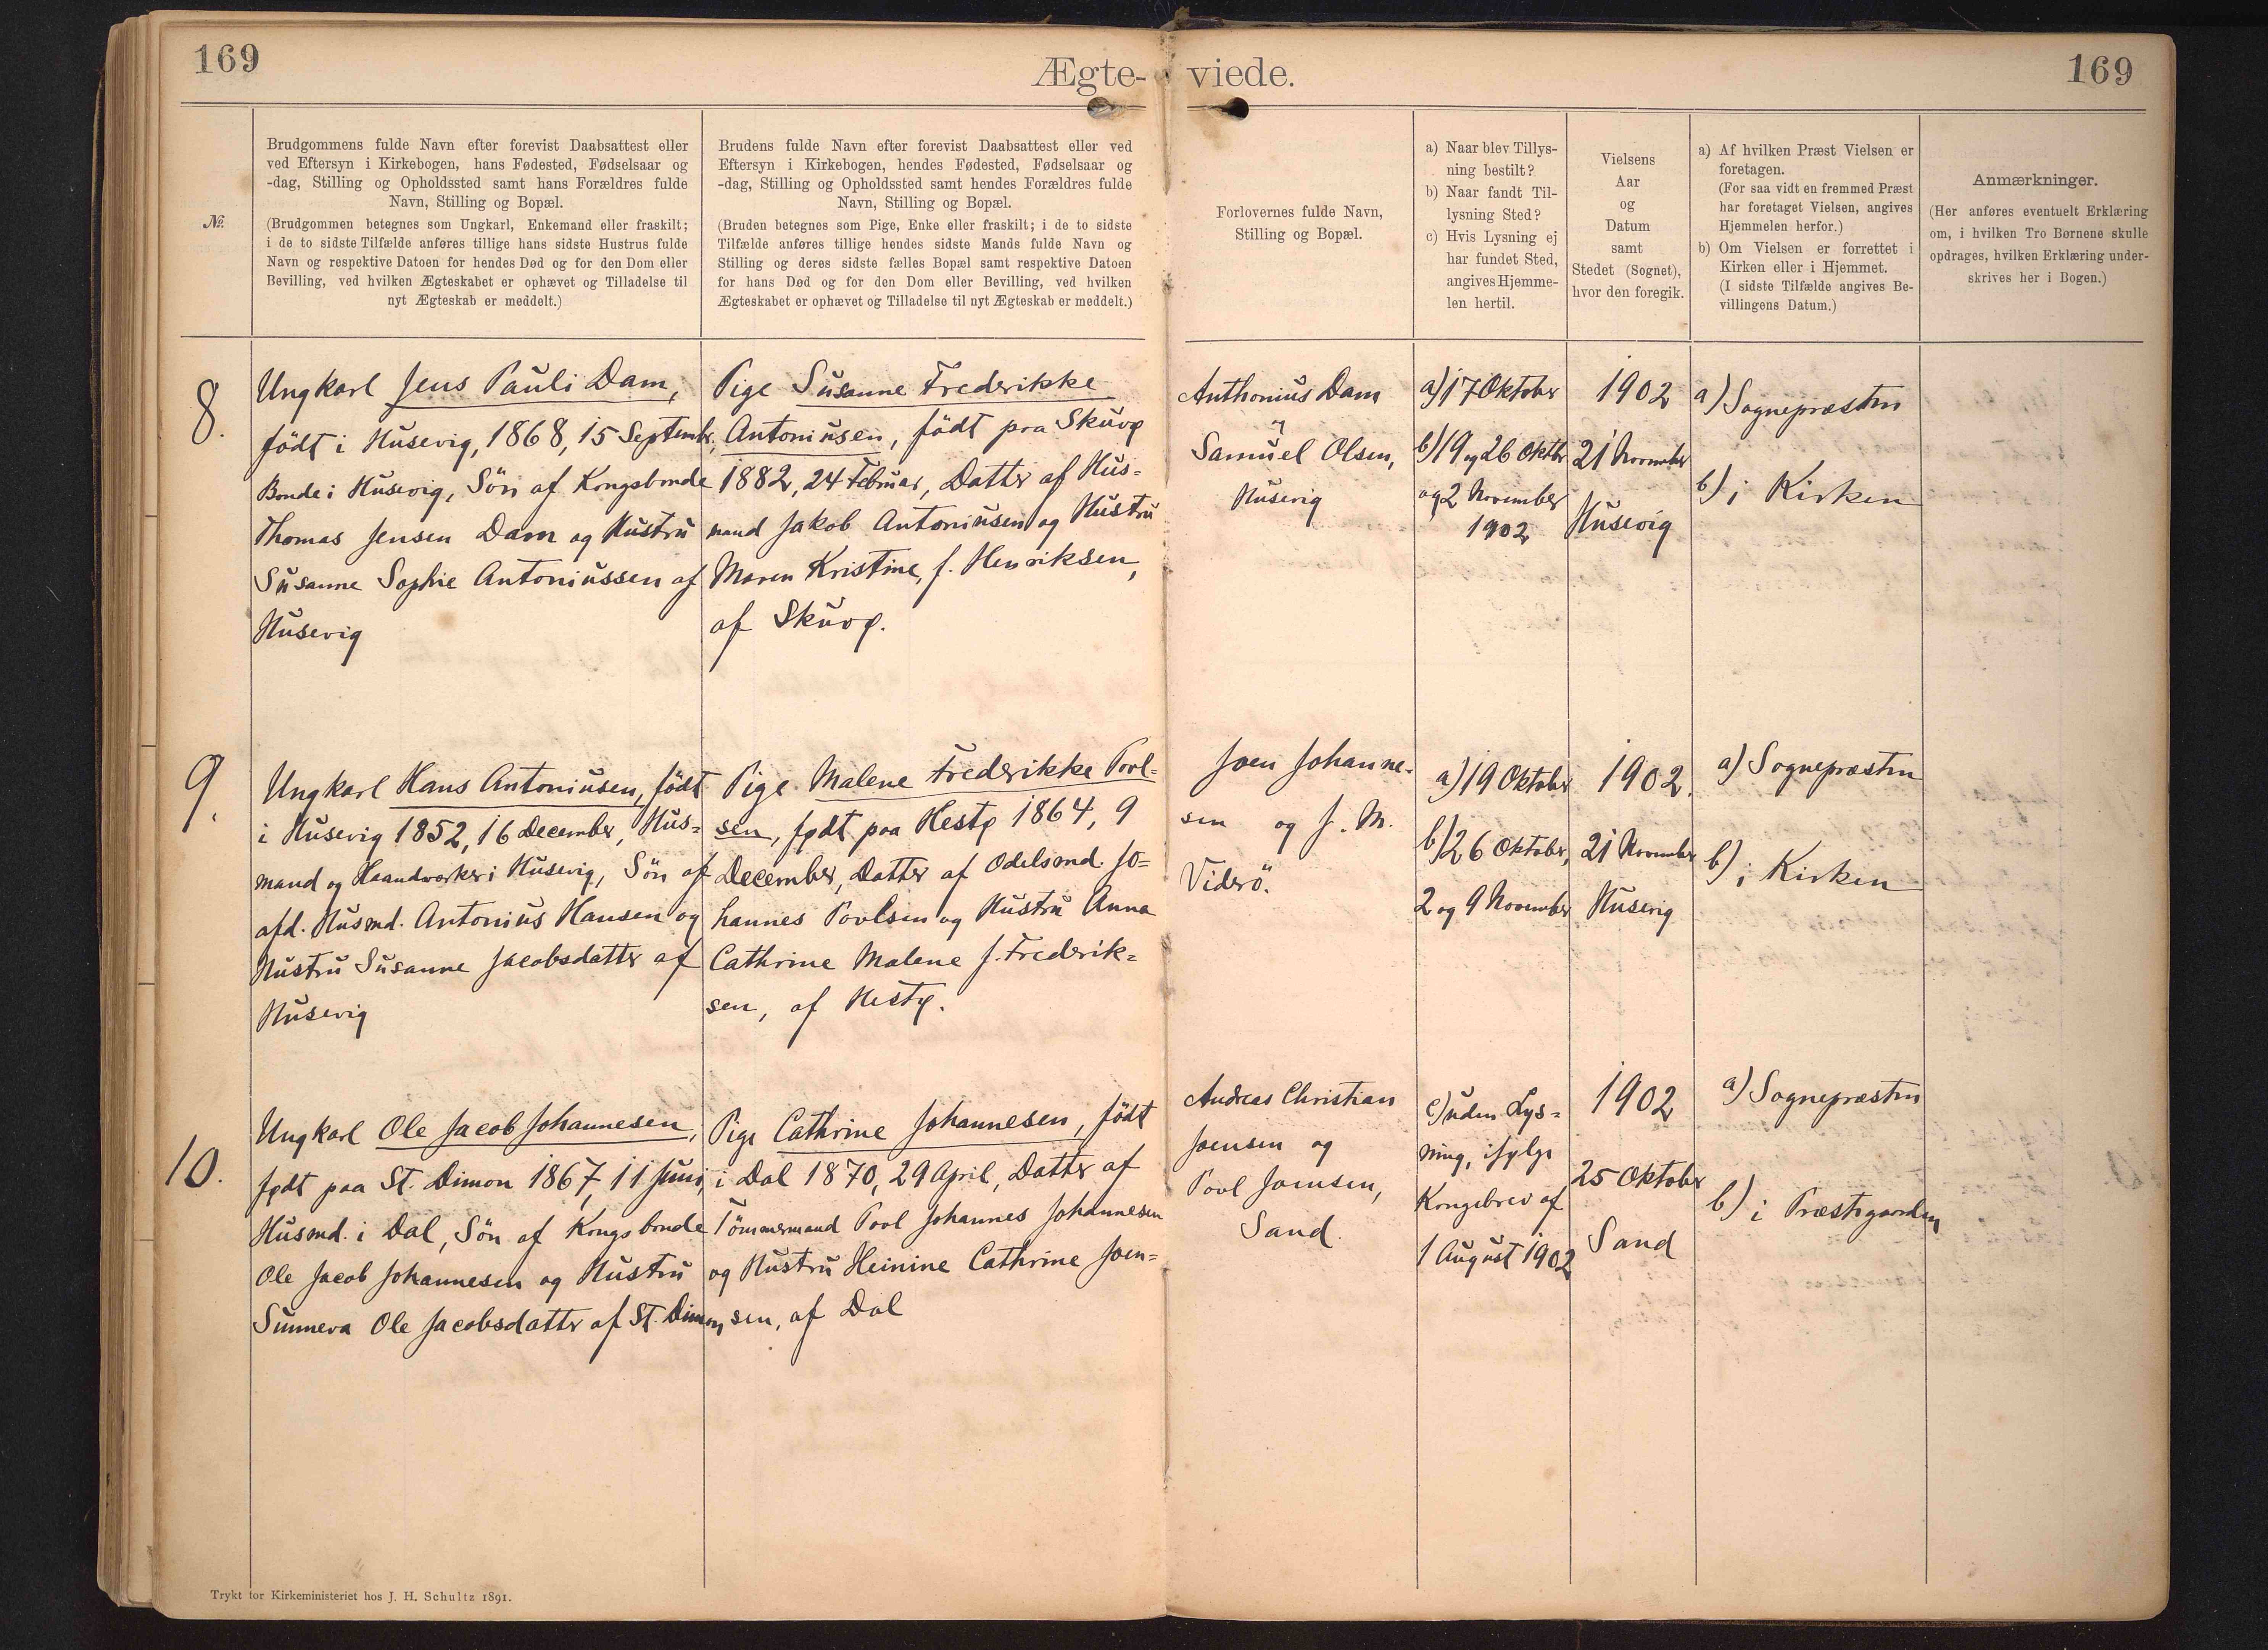 169
Ægte-
viede.
169
№
Brudgommens fulde Navn efter forevist Daabsattest eller
ved Eftersyn i Kirkebogen, hans Fødested, Fødselsaar og
-dag, Stilling og Opholdssted samt hans Forældres fulde
Navn, Stilling og Bopæl.
(Brudgommen betegnes som Ungkarl, Enkemand eller fraskilt;
i de to sidste Tilfælde anføres tillige hans sidste Hustrus fulde
Navn og respektive Datoen for hendes Død og for den Dom eller
Bevilling, ved hvilken Ægteskabet er ophævet og Tilladelse til
nyt Ægteskab er meddelt.)
Brudens fulde Navn efter forevist Daabsattest eller ved
Eftersyn i Kirkebogen, hendes Fødested, Fødselsaar og
-dag, Stilling og Opholdssted samt hendes Forældres fulde
Navn, Stilling og Bopæl.
(Bruden betegnes som Pige, Enke eller fraskilt; i de to sidste
Tilfælde anføres tillige hendes sidste Mands fulde Navn og
Stilling og deres sidste fælles Bopæl samt respektive Datoen
for hans Død og for den Dom eller Bevilling, ved hvilken
Ægteskabet er ophævet og Tilladelse til nyt Ægteskab er meddelt.)
Forlovernes fulde Navn,
Stilling og Bopæl.
a) Naar blev Tillys-
ning bestilt?
b) Naar fandt Til-
lysning Sted?
c) Hvis Lysning ej
har fundet Sted,
angives Hjemme-
len hertil.
Vielsens
Aar
og
Datum
samt
Stedet (Sognet),
hvor den foregik.
a) Af hvilken Præst Vielsen er
foretagen.
(For saa vidt en fremmed Præst
har foretaget Vielsen, angives
Hjemmelen herfor.)
b) Om Vielsen er forrettet i
Kirken eller i Hjemmet.
(I sidste Tilfælde angives Be-
villingens Datum.)
Anmærkninger.
(Her anføres eventuelt Erklæring
om, i hvilken Tro Børnene skulle
opdrages, hvilken Erklæring under-
skrives her i Bogen.)
8.
Ungkarl Jens Pauli Dam,
födt i Husevig, 1868, 15 Septembr,
Bonde i Husevig, Sön af Kongsbonde
Thomas Jensen Dam og Hustru
Susanne Sophie Antoniussen af
Husevig
Pige Susanne Frederikke
Antoniusen, födt paa Skuvø
1882, 24 Februar, Datter af Hus=
mand Jakob Antoniusen og Hustru
Maren Kristine, f. Henriksen,
af Skuvø.
Anthonius Dam
og
Samuel Olsen,
Husevig
a) 17 Oktober
b) 19 og 26 Oktbr
og 2 November
1902
1902
21 November
Husevig
a) Sognepræsten
b) i Kirken
9.
Ungkarl Hans Antoniusen, födt
i Husevig 1852, 16 December, Hus=
mand og Haandværker i Husevig, Sön af
afd. Husmd. Antonius Hansen og
Hustru Susanne Jacobsdatter af
Husevig
Pige Malene Frederikke Povl=
sen, født paa Hestø 1864, 9
December, Datter af Odelsmd. Jo=
hannes Povlsen og Hustru Anna
Cathrine Malene f. Frederik=
sen, af Hestø.
Joen Johanne-
sen og J. M.
Viderö.
a) 19 Oktober
b) 26 Oktober,
2 og 9 November
1902.
21 November
Husevig
a) Sognepræsten
b) i Kirken
10.
Ungkarl Ole Jacob Johannesen,
født paa St. Dimon 1867, 11 Juni,
Husmd. i Dal, Sön af Kongsbonde
Ole Jacob Johannesen og Hustru
Sunneva Ole Jacobsdatter af St. Dimon
Pige Cathrine Johannesen, födt
i Dal 1870, 29 April, Datter af
Tömmermand Povl Johannes Johannesen
og Hustru Heinine Cathrine Joen=
sen, af Dal
Andreas Christian
Joensen og
Povl Joensen,
Sand.
c) uden Lys=
ning, ifølge
Kongebrev af
1 August 1902
1902
25 Oktober
Sand
a) Sognepræsten
b) i Præstegaarden
Trykt for Kirkeministeriet hos J. H. Schultz 1891.